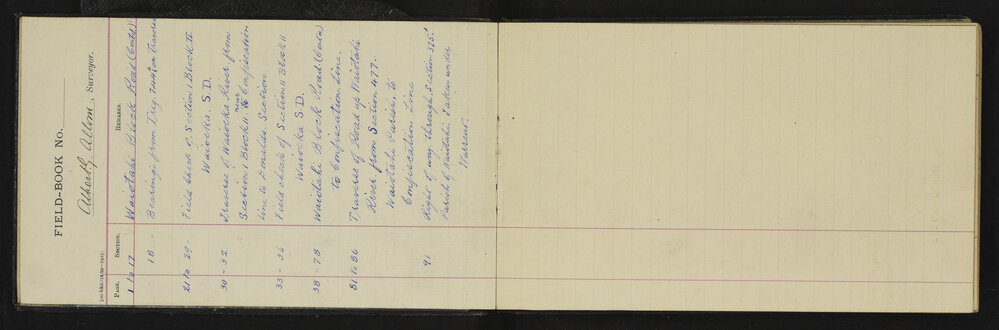 FIELD-BOOK No.
Albert J. Allom, Surveyor.
PAGE. SECTION. REMARKS.
1 to 17 Waiotahi Block Road (Coats)
18 Bearings from Trig. on Traverse
21 to 29 Field check of Section 1 Block II
Waioeka. S.D.
30-32 Traverse of Waioeka River from
Section 1 Block II to near Confiscation
line to Donalds Section
33-36 Field check of Section 11 Block II
Waioeka S.D.
38-78 Waiotahi Block Road (Coats)
to Confiscation Line.
81 to 86 Traverse of Road up Waiotahi
River from Section 477.
Waiotahi Parish, to
Confiscation Line
91 Right of way through Section 325
Parish of Waiotahi. Taken under
Warrant.